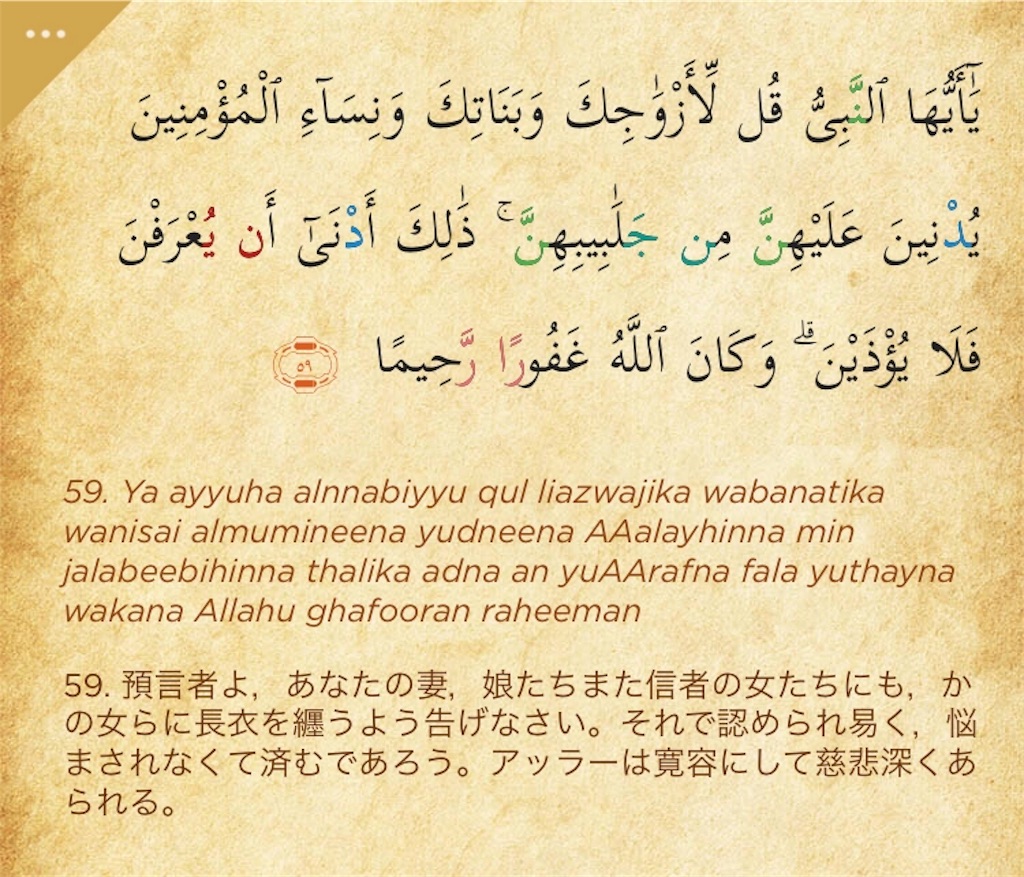 يَٰٓأَيُّهَا ٱلنَّبِىُّ قُل لِّأَزْوَٰجِكَ وَبَنَاتِكَ وَنِسَآءِ ٱلْمُؤْمِنِينَ
يُدْنِينَ عَلَيْهِنَّ مِن جَلَٰبِيبِهِنَّ ۚ ذَٰلِكَ أَدْنَىٰٓ أَن يُعْرَفْنَ
فَلَا يُؤْذَيْنَ ۗ وَكَانَ ٱللَّهُ غَفُورًا رَّحِيمًا ٥٩
59. Ya ayyuha alnnabiyyu qul liazwajika wabanatika
wanisai almumineena yudneena AAalayhinna min
jalabeebihinna thalika adna an yuAArafna fala yuthayna
wakana Allahu ghafooran raheeman
59. 預言者よ，あなたの妻，娘たちまた信者の女たちにも，か
の女らに長衣を纏うよう告げなさい。それで認められ易く，悩
まされなくて済むであろう。アッラーは寛容にして慈悲深くあ
られる。